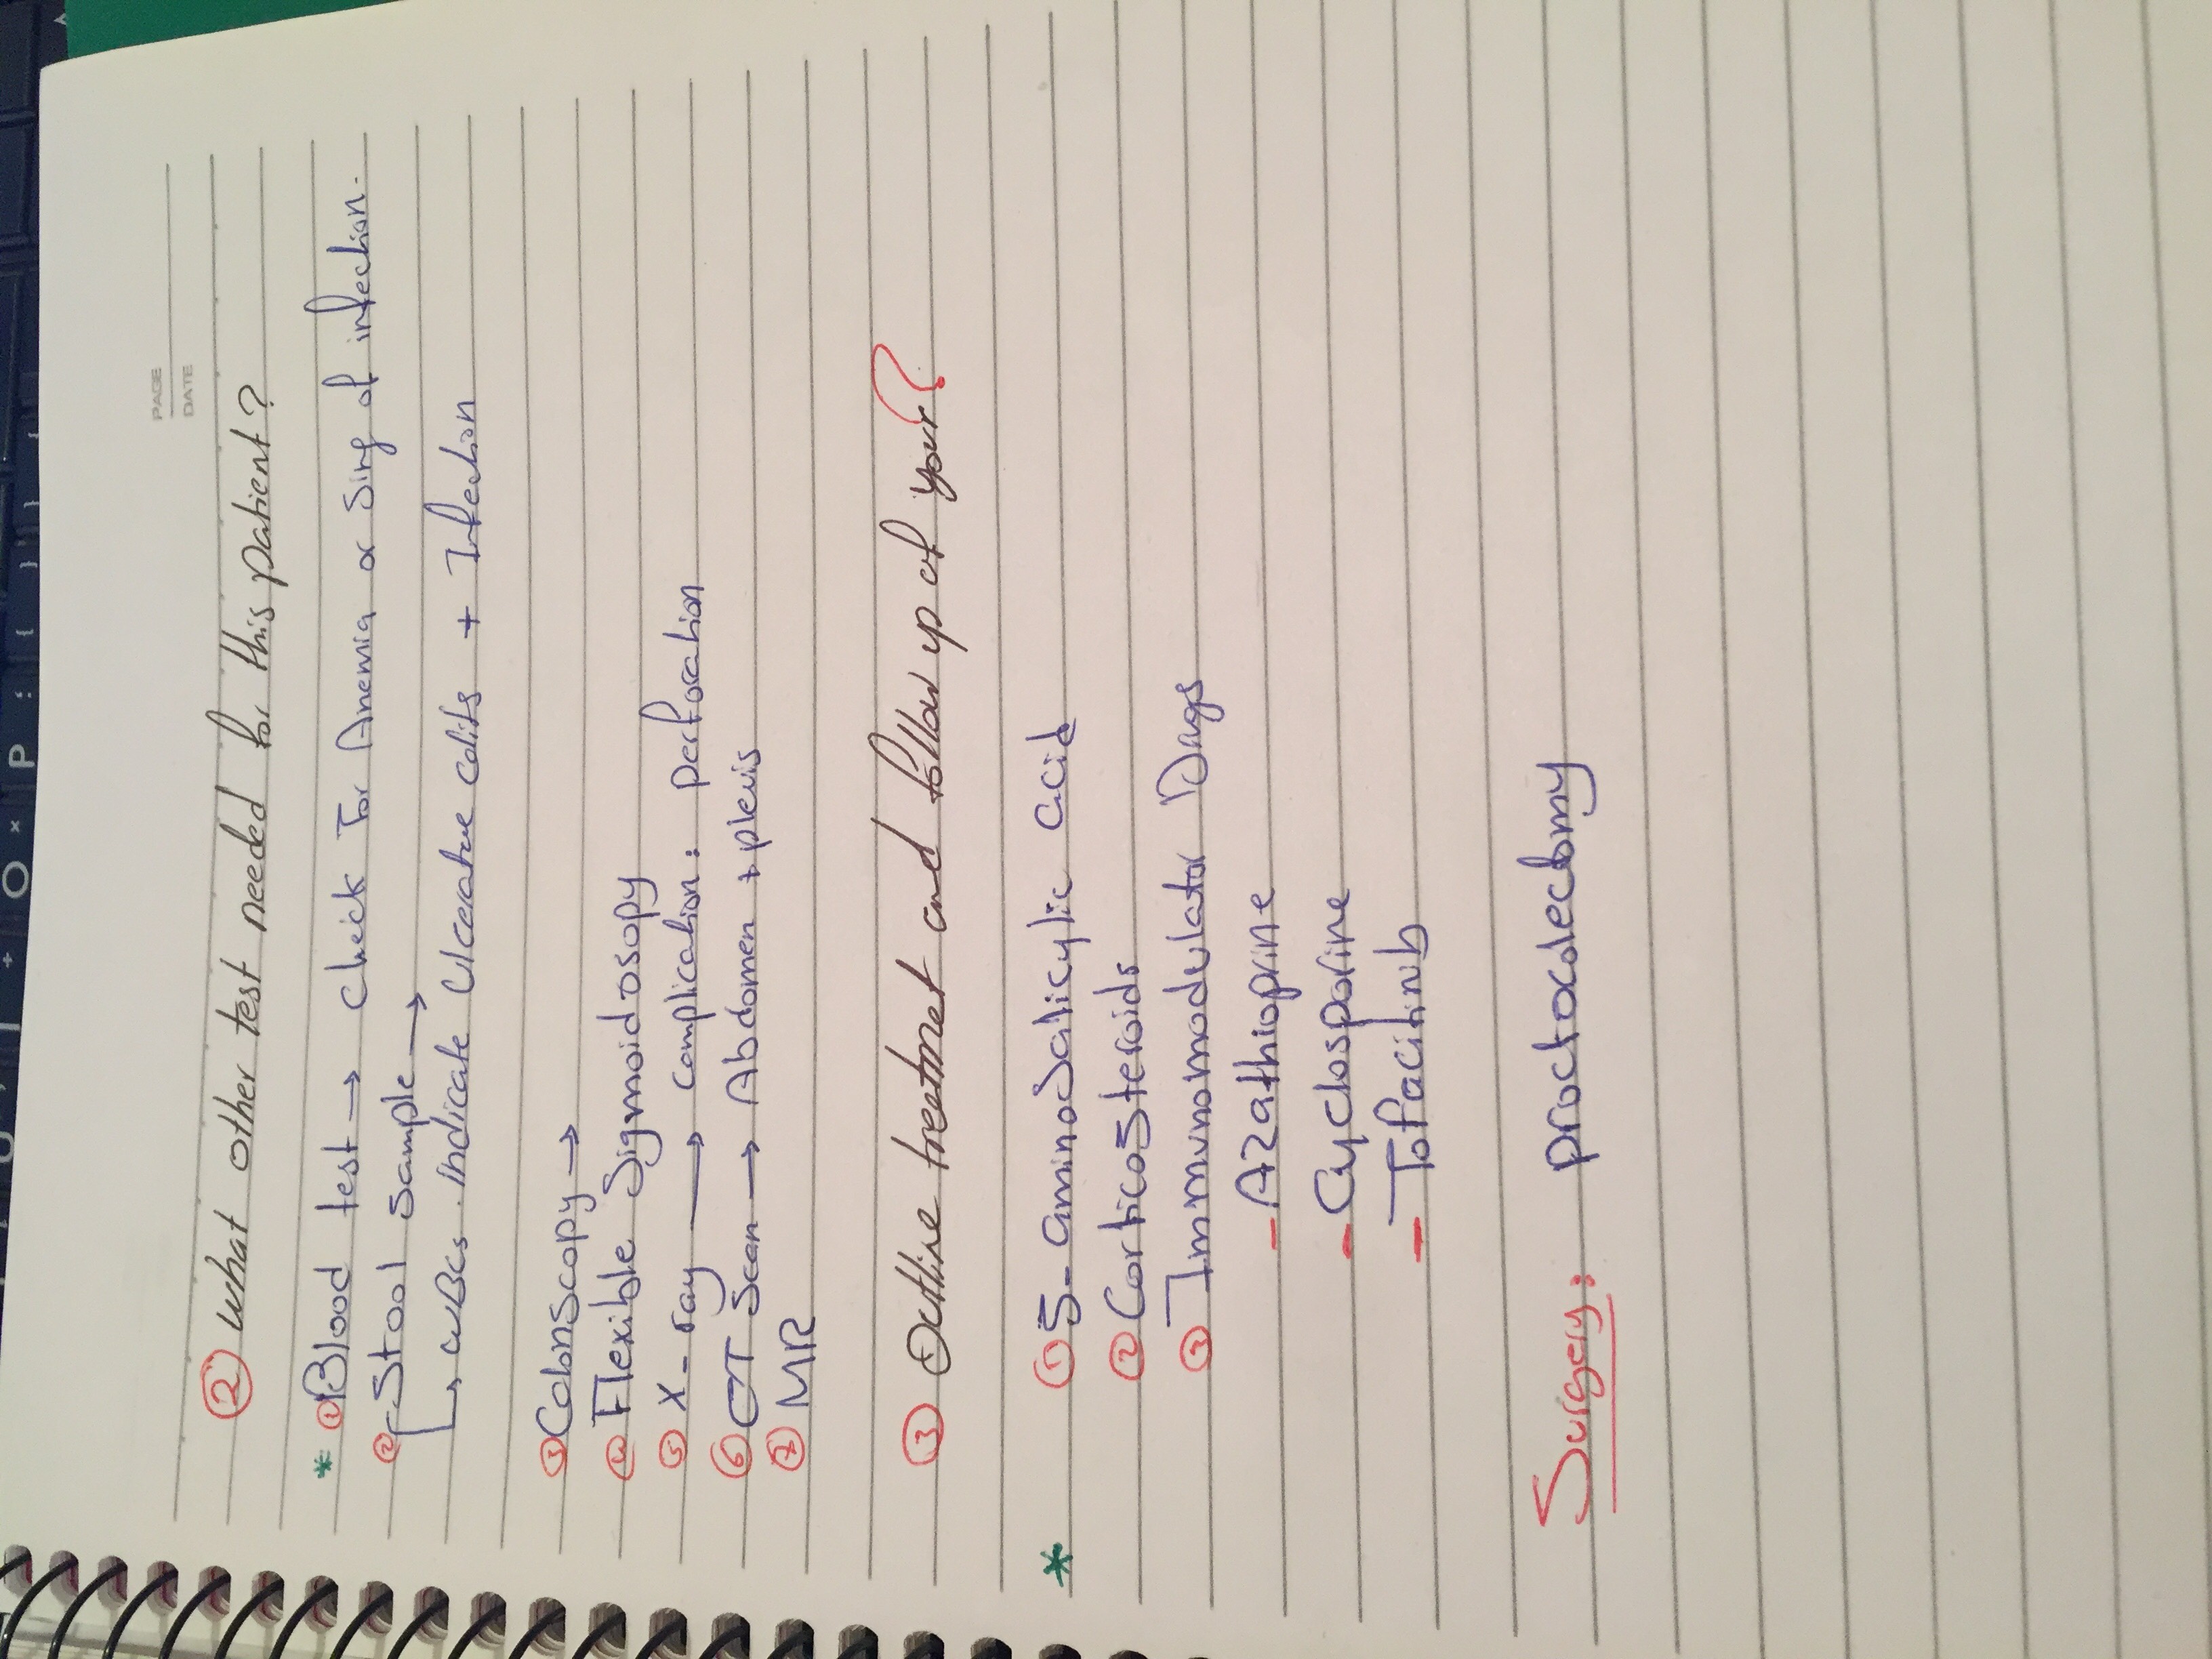 PAGE
DATE
② what other test needed for this patient?
* ① Blood test → check For Anemia or Sing of infection.
② Stool sample →
↳ WBCs. indicate Ulcerative colits + Infection
③ Colonscopy →
④ Flexible Sigmoidosopy
⑤ X-ray → complication: perforation
⑥ CT Scan → Abdomen + plevis
⑦ MR
③ Outline treetmet and follow up of your?
* ① 5-aminoSalicylic acid
② Corticosteroids
③ Immunomodulator Drugs
- Azathioprine
- Cyclosporine
- Tofacitinib
Surgery: proctocolectomy
O P